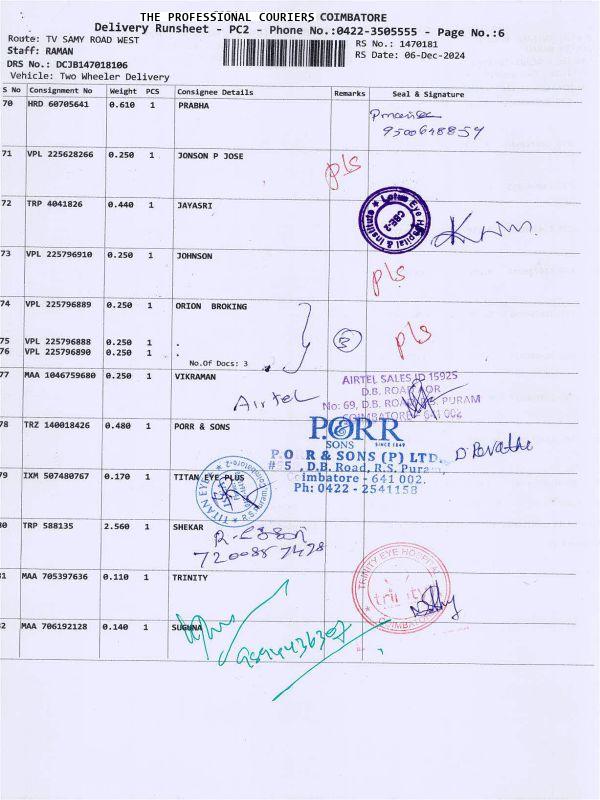 THE PROFESSIONAL COURIERS COIMBATORE
Delivery Runsheet - PC2 - Phone No.:0422-3505555 - Page No.:6
Route: TV SAMY ROAD WEST
RS No.: 1470181
Staff: RAMAN
RS Date: 06-Dec-2024
DRS No.: DCJB147018106
Vehicle: Two Wheeler Delivery
S No Consignment No Weight PCS Consignee Details Remarks Seal & Signature
70 HRD 60705641 0.610 1 PRABHA
9500648859
71 VPL 225628266 0.250 1 JONSON P JOSE
pls
72 TRP 4041826 0.440 1 JAYASRI
Lotus Eye Hospital & Institute
CBE-2
73 VPL 225796910 0.250 1 JOHNSON
pls
74 VPL 225796889 0.250 1 ORION BROKING
75 VPL 225796888 0.250 1 .
76 VPL 225796890 0.250 1 .
3 pls
No.Of Docs: 3
77 MAA 1046759680 0.250 1 VIKRAMAN
Airtel
AIRTEL SALES ID 15925
No: 69, D.B. PURAM
COIMBATORE - 641 002
78 TRZ 140018426 0.480 1 PORR & SONS
PORR
SONS SINCE 1949
P.O R & SONS (P) LTD.
# 5 , D.B. Road, R.S. Puram,
Coimbatore - 641 002.
Ph: 0422 - 2541158
79 IXM 507480767 0.170 1 TITAN EYE PLUS
TITAN EYE
R.S.Puram
Coimbatore-2
80 TRP 588135 2.560 1 SHEKAR
7200857478
81 MAA 705397636 0.110 1 TRINITY
TRINITY EYE HOSPITAL
trinity
COIMBATORE
82 MAA 706192128 0.140 1 SUGUNA
9894436307